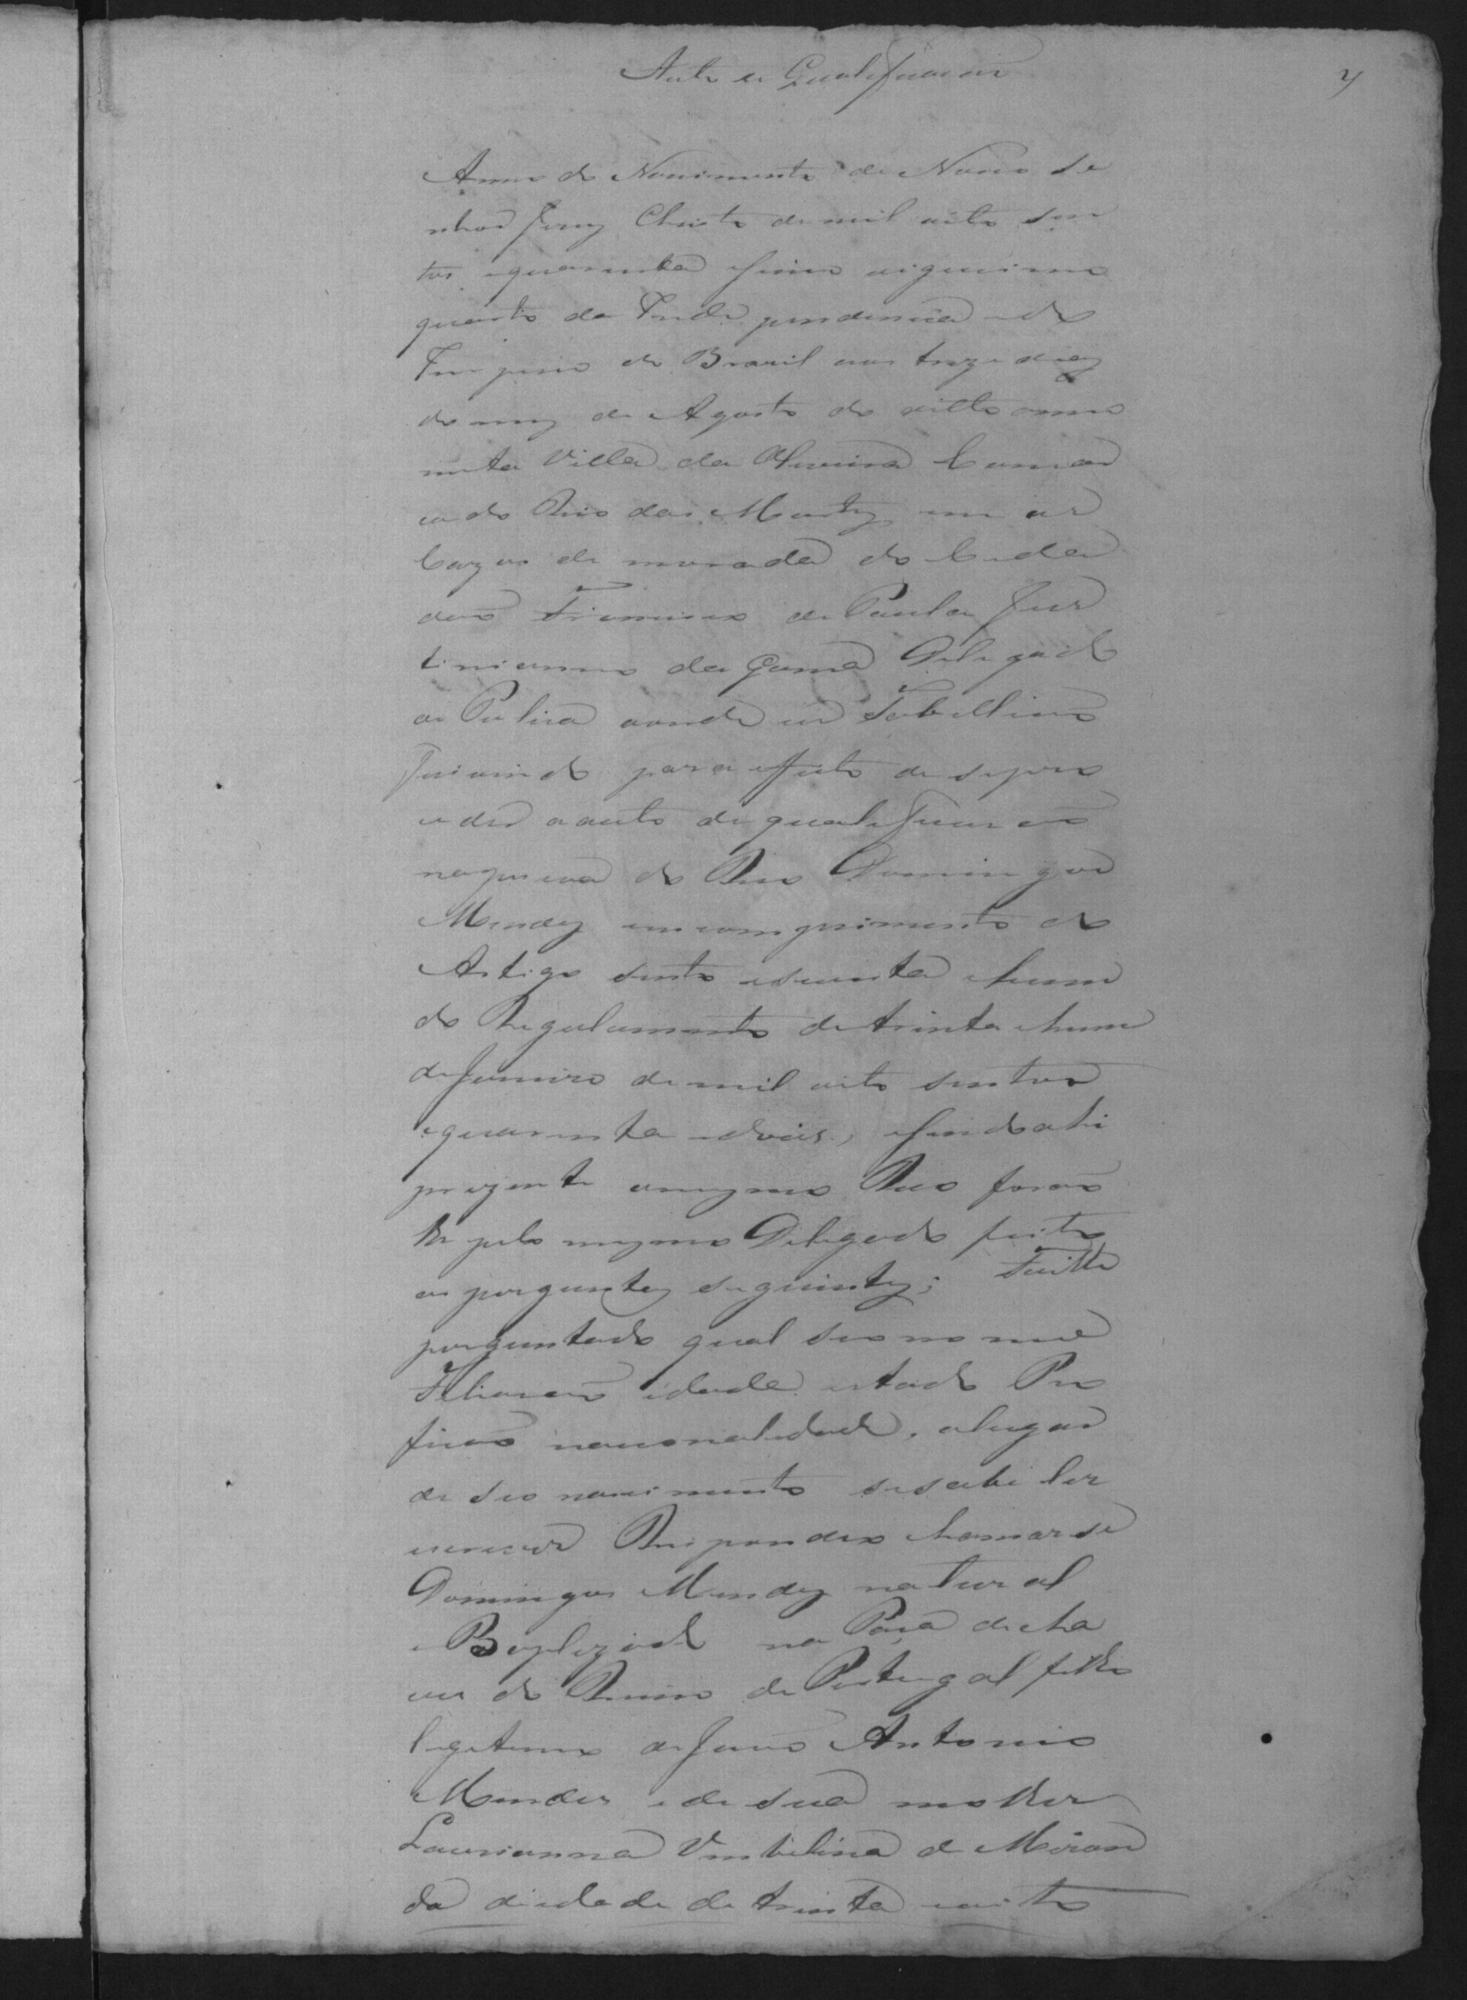 Auto de Qualificacaõ
4
Anno do Nascimento de Nosso Se
nhor Jezus Christo de mil oito sen
tos e quarenta e sinco vigecimo
quarto da Independencia e do
Imperio do Brazil aos treze dias
do mez de Agosto do ditto anno
nesta Villa da Oliveira Comar
ca do Rio das Mortes em as
Cazas de morada do Cida
daõ Francisco de Paula Jus
tinianno da Gama Delegado
de Policia aonde eu Tabelliaõ
fui vindo para effeito de se pro
ceder o auto de qualificacaõ
na pessoa do Reo Domingos
Mendes em comprimento do
Artigo sento e setenta e hum
do Regulamento de trinta e hum
de Janeiro de mil oito sentos
e quarenta e dois, e sendo ahi
prezente o mesmo Reo foraõ
lhe pelo mesmo Delegado feitas
as perguntas seguintes; Foi lhe
perguntado qual seo nome
Filiacaõ idade estado Pro
ficaõ nacionalidade, o lugar
de seo nascimento se sabe ler
escrever Respondeo chamar se
Domingos Mendes natural
e Baptizado na Praça de Cha
ves do Reino de Portugal filho
legitimo de Joaõ Antonio
Mendes e de sua molher
Laurianna Umbilina de Miran
da de idade de trinta e oito